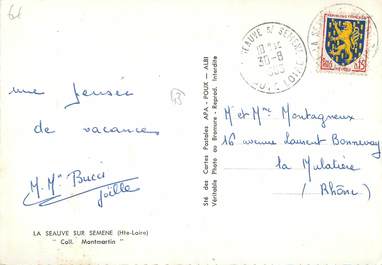 LA SEAUVE S/ SEMENE
30-8
HTE LOIRE
REPUBLIQUE FRANÇAISE
0,15
une pensée
de vacances
M. Me Bucci
Joëlle
LA SEAUVE SUR SEMENE (Hte-Loire)
" Coll. Montmartin "
Sté des Cartes Postales APA - POUX - ALBI
Véritable Photo au Bromure - Reprod. Interdite
M et Mme Montagneux
16 avenue Laurent Bonnevay
La Mulatière
(Rhône)